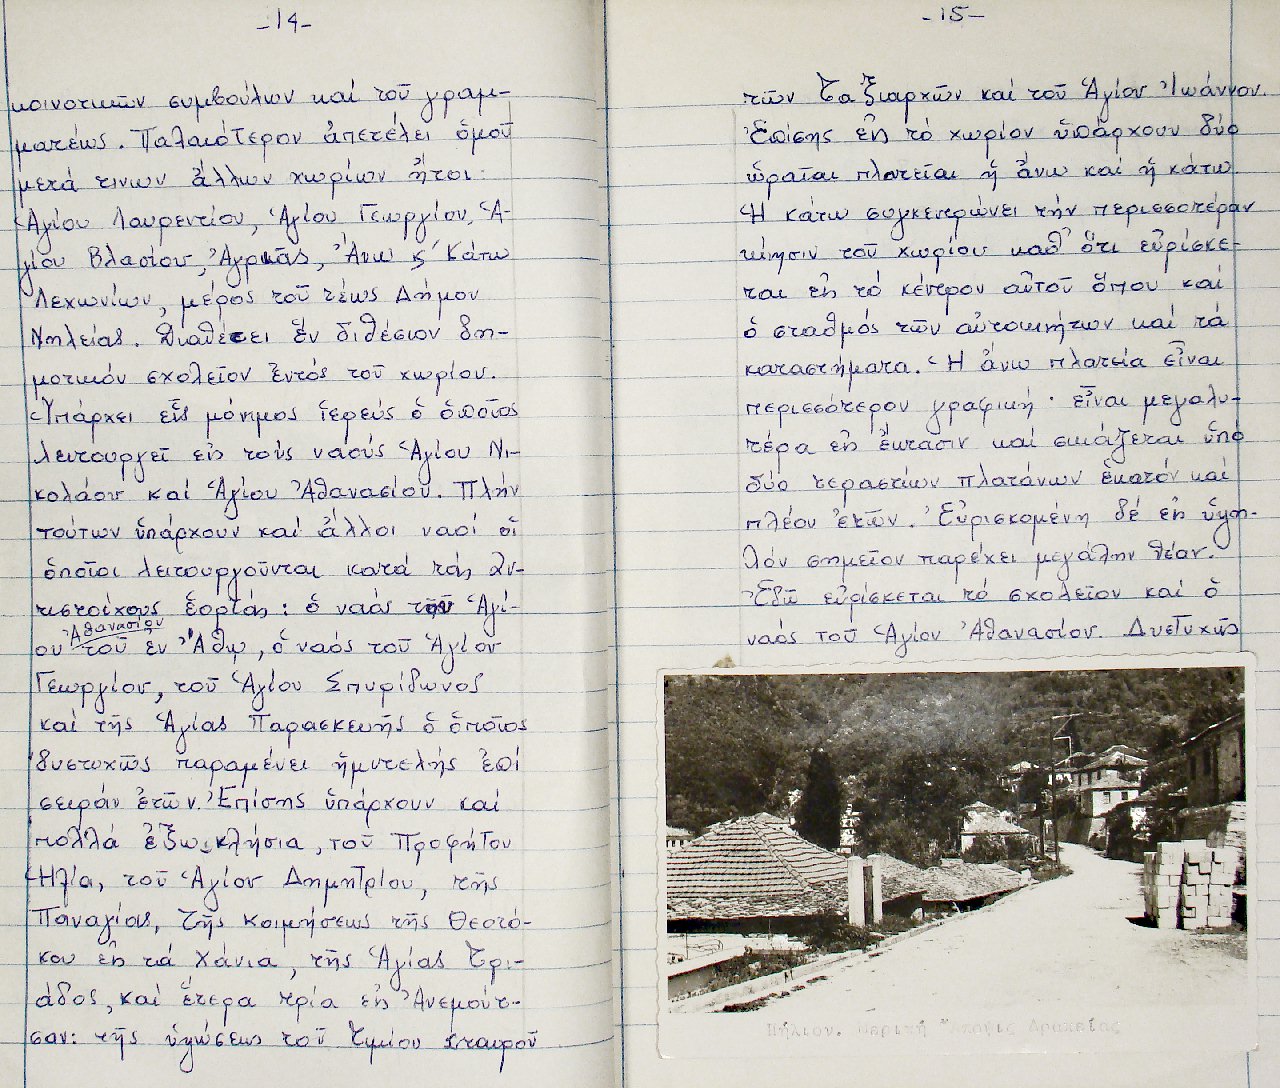 -14-
κοινοτικῶν συμβούλων καί τοῦ γραμ-
ματέως. Παλαιότερον ἀπετέλει ὁμοῦ
μετά τινων ἄλλων χωρίων ἤτοι:
Ἁγίου Λαυρεντίου, Ἁγίου Γεωργίου, Ἁ-
γίου Βλασίου, Ἀγριᾶς, Ἄνω ϛ' Κάτω
Λεχωνίων, μέρος τοῦ τέως Δήμου
Νηλείας. Διαθέτει ἕν διθέσιον δη-
μοτικόν σχολεῖον ἐντός τοῦ χωρίου.
Ὑπάρχει εἷς μόνιμος ἱερεύς ὁ ὁποῖος
λειτουργεῖ εἰς τούς ναούς Ἁγίου Νι-
κολάου καί Ἁγίου Ἀθανασίου. Πλήν
τούτων ὑπάρχουν καί ἄλλοι ναοί οἱ
ὁποῖοι λειτουργοῦνται κατά τάς ἀν-
τιστοίχους ἑορτάς: ὁ ναός τοῦ Ἁγί-
Ἀθανασίου
ου τοῦ ἐν Ἄθῳ, ὁ ναός τοῦ Ἁγίου
Γεωργίου, τοῦ Ἁγίου Σπυρίδωνος
καί τῆς Ἁγίας Παρασκευῆς ὁ ὁποῖος
δυστυχῶς παραμένει ἡμιτελής ἐπί
σειράν ἐτῶν. Ἐπίσης ὑπάρχουν καί
πολλά ἐξωκλήσια, τοῦ Προφήτου
Ἠλία, τοῦ Ἁγίου Δημητρίου, τῆς
Παναγίας, τῆς Κοιμήσεως τῆς Θεοτό-
κου εἰς τά Χάνια, τῆς Ἁγίας Τρι-
άδος, καί ἕτερα τρία εἰς Ἀνεμούτ-
σαν: τῆς ὑψώσεως τοῦ Τιμίου Σταυροῦ
-15-
τῶν Ταξιαρχῶν καί τοῦ Ἁγίου Ἰωάννου.
Ἐπίσης εἰς τό χωρίον ὑπάρχουν δύο
ὡραῖαι πλατεῖαι ἡ ἄνω καί ἡ κάτω.
Ἡ κάτω συγκεντρώνει τήν περισσοτέραν
κίνησιν τοῦ χωρίου καθ' ὅτι εὑρίσκε-
ται εἰς τό κέντρον αὐτοῦ ὅπου καί
ὁ σταθμός τῶν αὐτοκινήτων καί τά
καταστήματα. Ἡ ἄνω πλατεία εἶναι
περισσότερον γραφική· εἶναι μεγαλυ-
τέρα εἰς ἔκτασιν καί σκιάζεται ὑπό
δύο τεραστίων πλατάνων ἑκατόν καί
πλέον ἐτῶν. Εὑρισκομένη δέ εἰς ὑψη-
λόν σημεῖον παρέχει μεγάλην θέαν.
Ἐδῶ εὑρίσκεται τό σχολεῖον καί ὁ
ναός τοῦ Ἁγίου Ἀθανασίου. Δυστυχῶς
Πήλιον. Μερική Ἄποψις Δρακείας